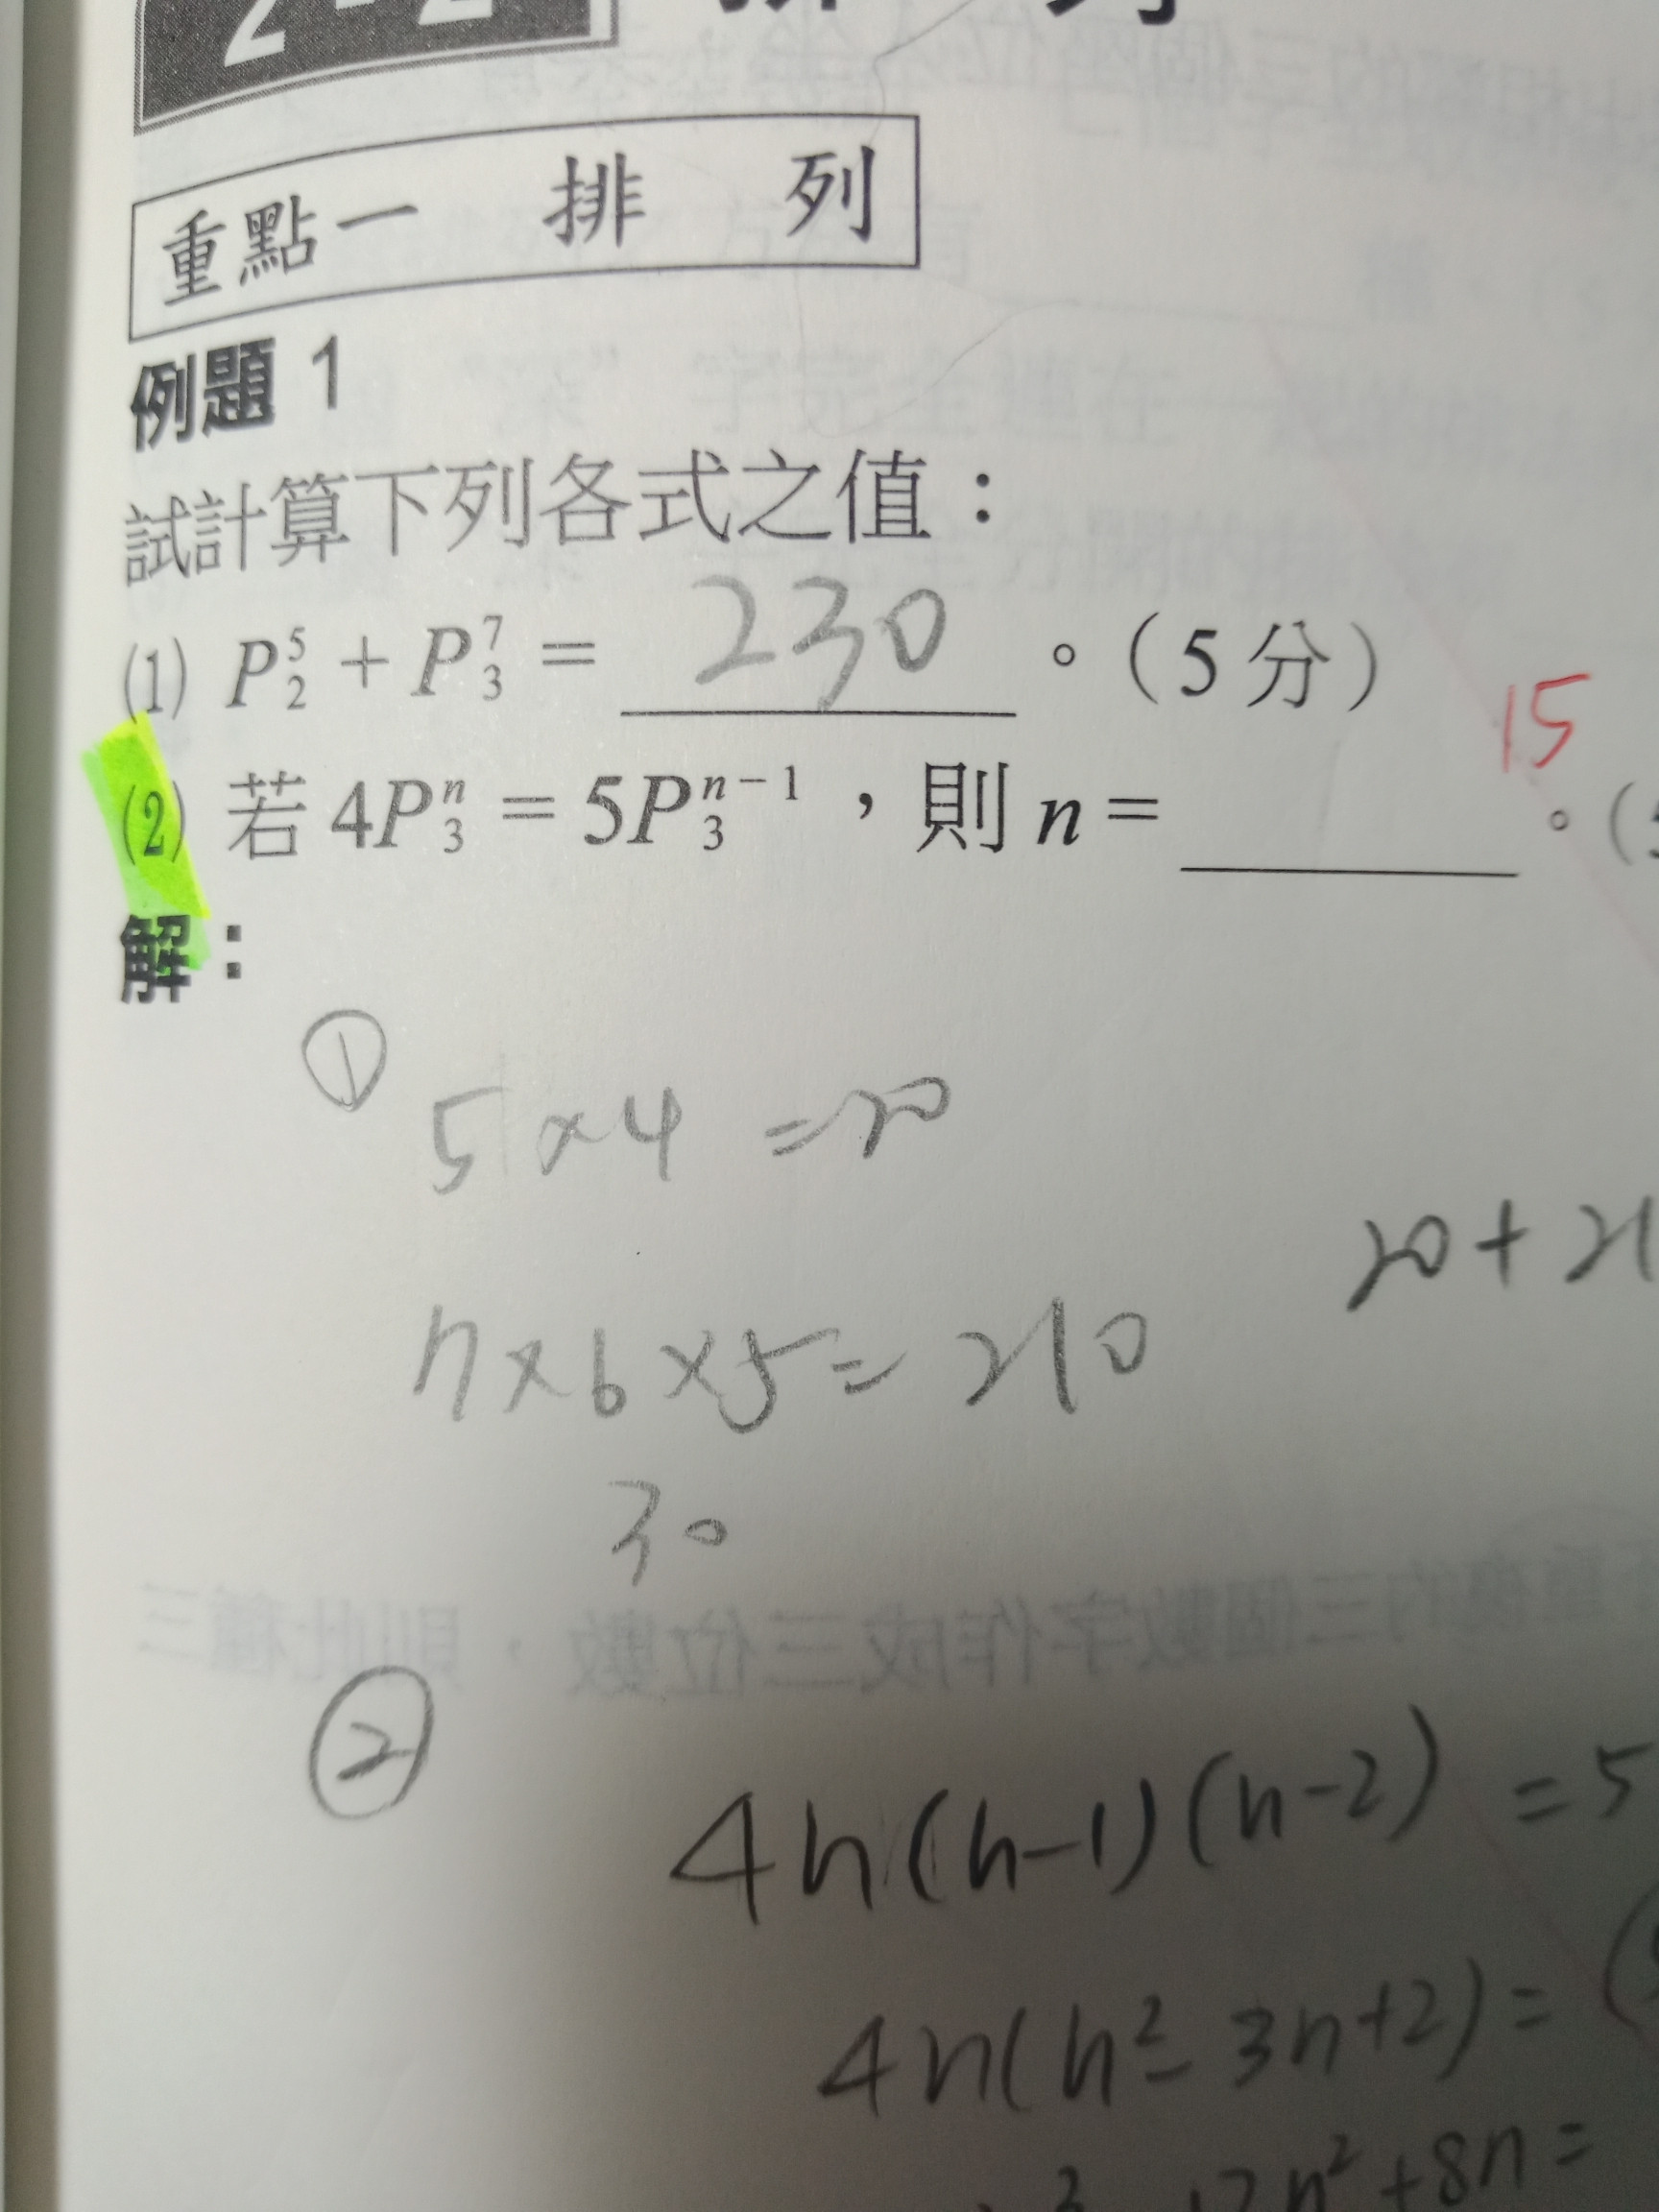 重點一 排 列
例題 1
試計算下列各式之值：
(1) P₂⁵ + P₃⁷ = 230 。(5分)
15
(2) 若 4P₃ⁿ = 5P₃ⁿ⁻¹，則 n = 。(5
解：
① 5×4 =20
20+21
7×6×5=210
30
② 4n(n-1)(n-2) =5
4n(n²-3n+2)=
12n²+8n=